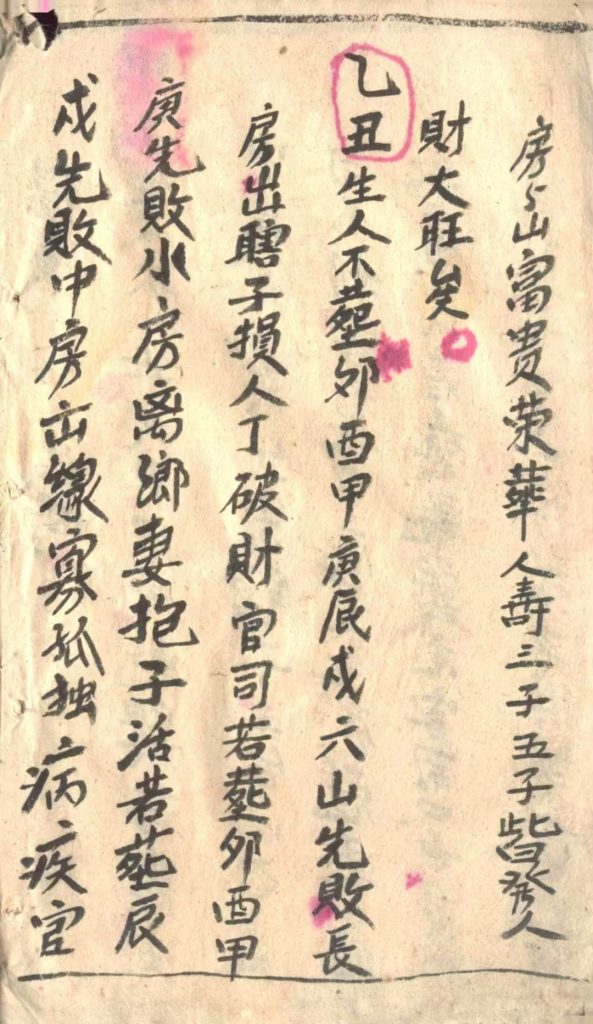 房山富貴荣華人壽三子五子皆発人
財大旺矣
乙丑生人不塟卯酉甲庚辰戌六山先敗長
房出瞎子損人丁破財官司若塟卯酉甲
庚先敗小房离鄉妻抱子活若塟辰
戌先敗中房出寡孤独病疾官